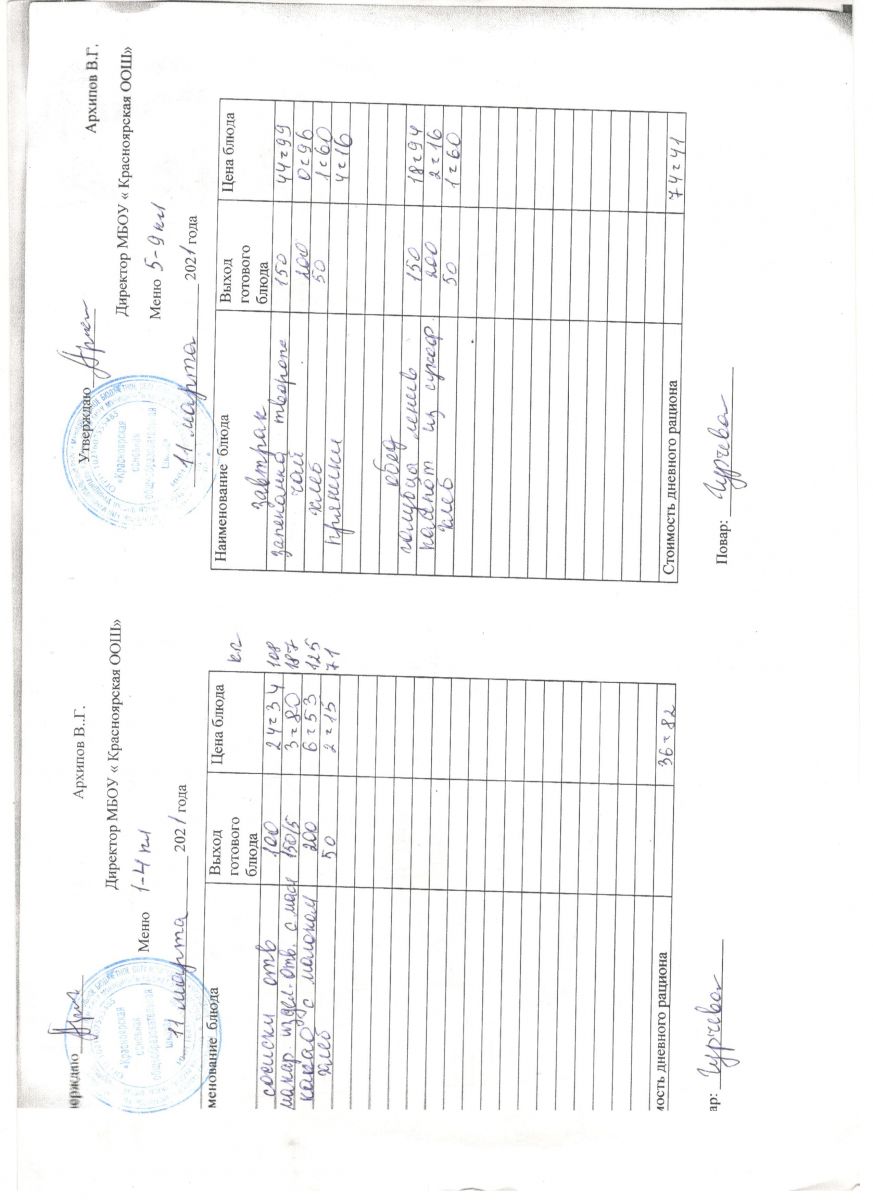 верждаю
Архипов В..Г.
Директор МБОУ « Красноярская ООШ»
Меню 1-4 кл
11 марта 2021 года
менование блюда Выход готового блюда Цена блюда
сосиски отв 100 24=34 108
макар издел. отв. с масл 150/5 3=80 187
какао с молоком 200 6=53 125
хлеб 50 2=15 71
мость дневного рациона 36=82
ар:
Утверждаю
Архипов В.Г.
Директор МБОУ « Красноярская ООШ»
Меню 5-9 кл
11 марта 2021 года
Наименование блюда Выход готового блюда Цена блюда
завтрак
запеканка творожн 150 44=99
чай 200 0=96
хлеб 50 1=60
пряники 4=16
обед
голубцы ленив 150 18=94
компот из сухоф 200 2=16
хлеб 50 1=60
Стоимость дневного рациона 74=41
Повар: